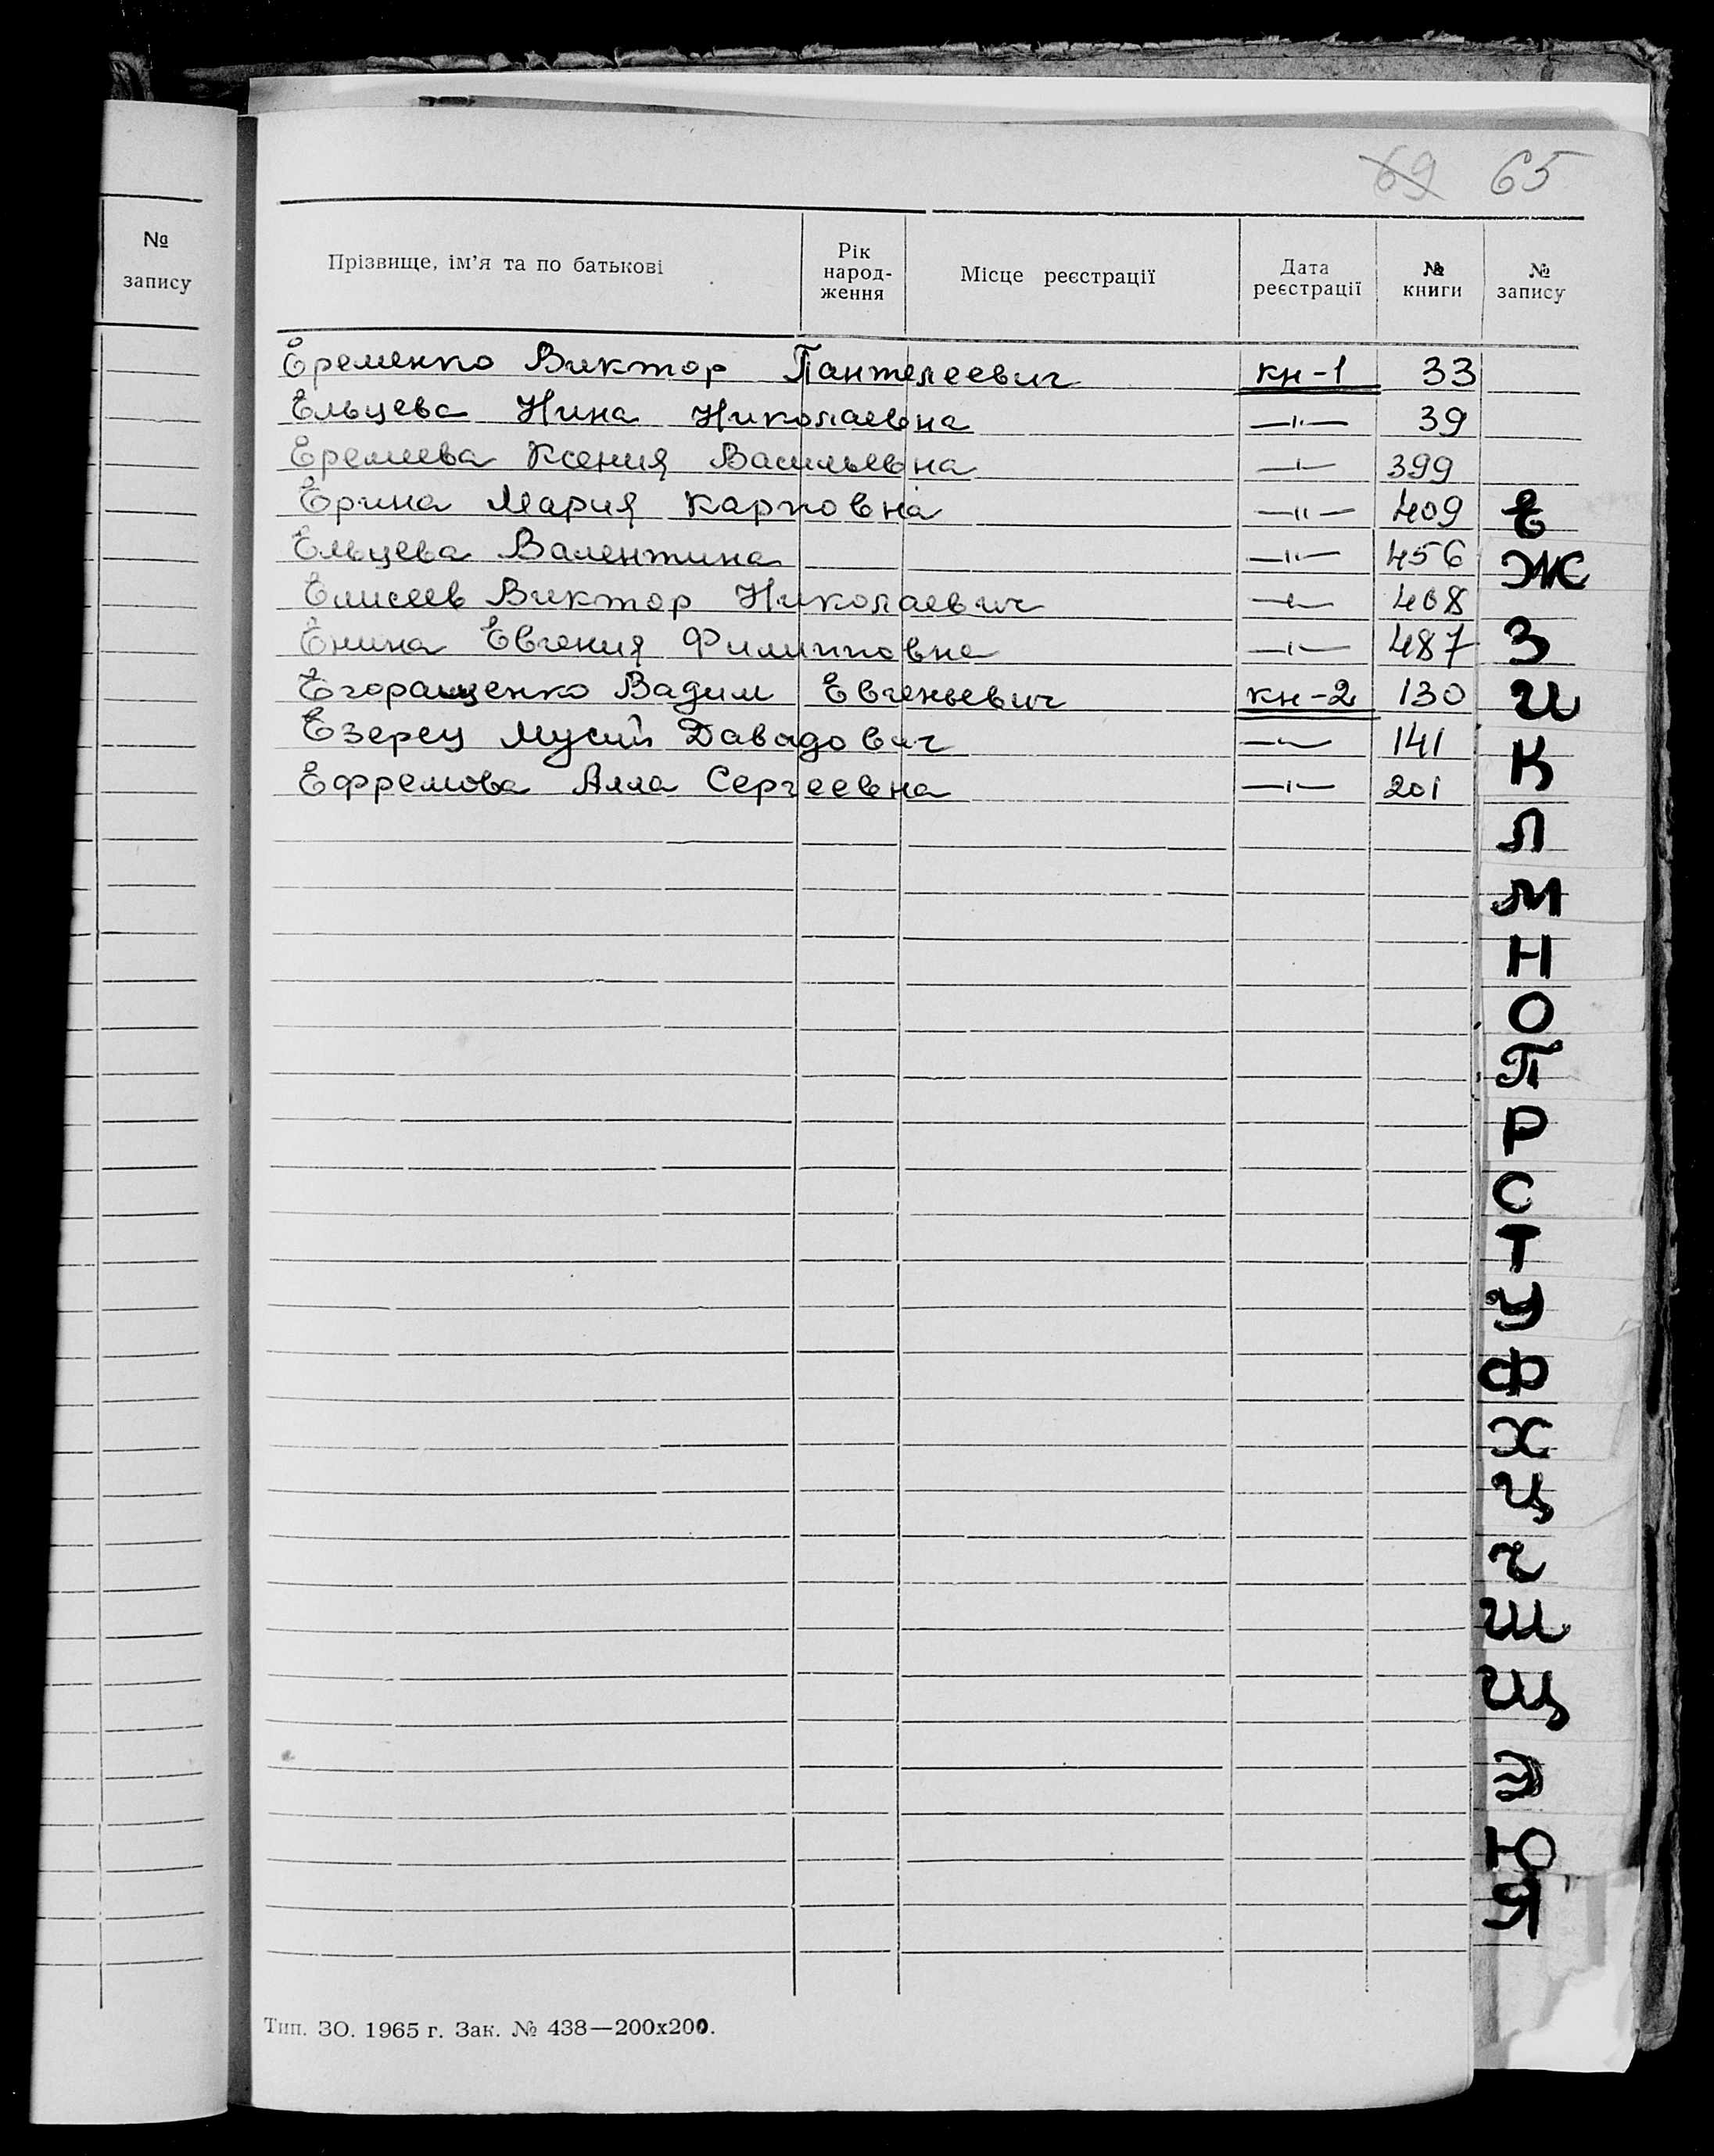 69 65
№ запису
Прізвище, ім’я та по батькові Рік народ- ження Місце реєстрації Дата реєстрації № книги № запису
Еременко Виктор Пантелеевич кн-1 33
Ельцева Нина Николаевна —"— 39
Еремеева Ксения Васильевна —"— 399
Ерина Мария Карповна —"— 409
Ельцева Валентина —"— 456
Елисеев Виктор Николаевич —"— 468
Енина Евгения Филипповна —"— 487
Егоращенко Вадим Евгеньевич кн-2 130
Езерец Мусий Давидович —"— 141
Ефремова Алла Сергеевна —"— 201
Е
Ж
З
И
К
Л
М
Н
О
П
Р
С
Т
У
Ф
Х
Ц
Ч
Ш
Щ
Э
Ю
Я
Тип. ЗО. 1965 г. Зак. № 438—200х200.